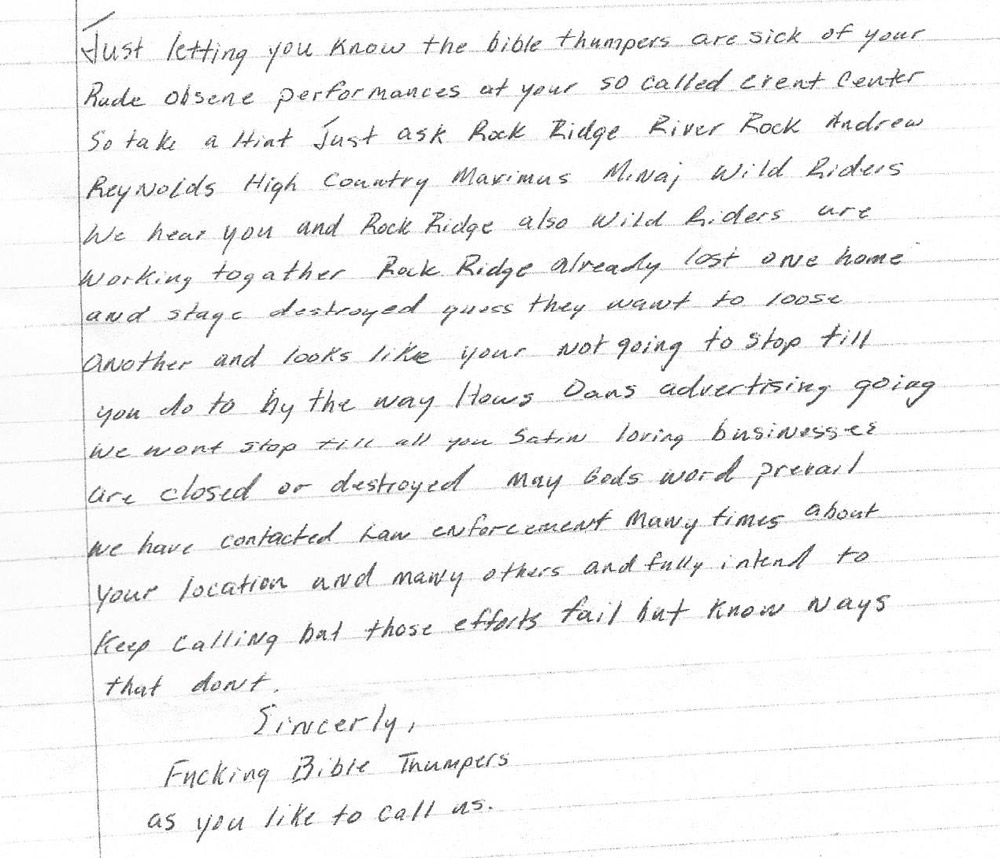 Just letting you know the bible thumpers are sick of your
Rude obsene performances at your so called event center
So take a Hint Just ask Rock Ridge River Rock Andrew
Reynolds High Country Maximus Minaj Wild Riders
We hear you and Rock Ridge also Wild Riders are
working togather Rock Ridge already lost one home
and stage destroyed guess they want to loose
another and looks like your not going to stop till
you do to by the way Hows Dans advertising going
we wont stop till all you Satin loving businesses
are closed or destroyed may Gods word prevail
we have contacted Law enforcement Many times about
your location and many others and fully intend to
Keep calling but those efforts fail but know ways
that dont.
Sincerly,
Fucking Bible Thumpers
as you like to call us.